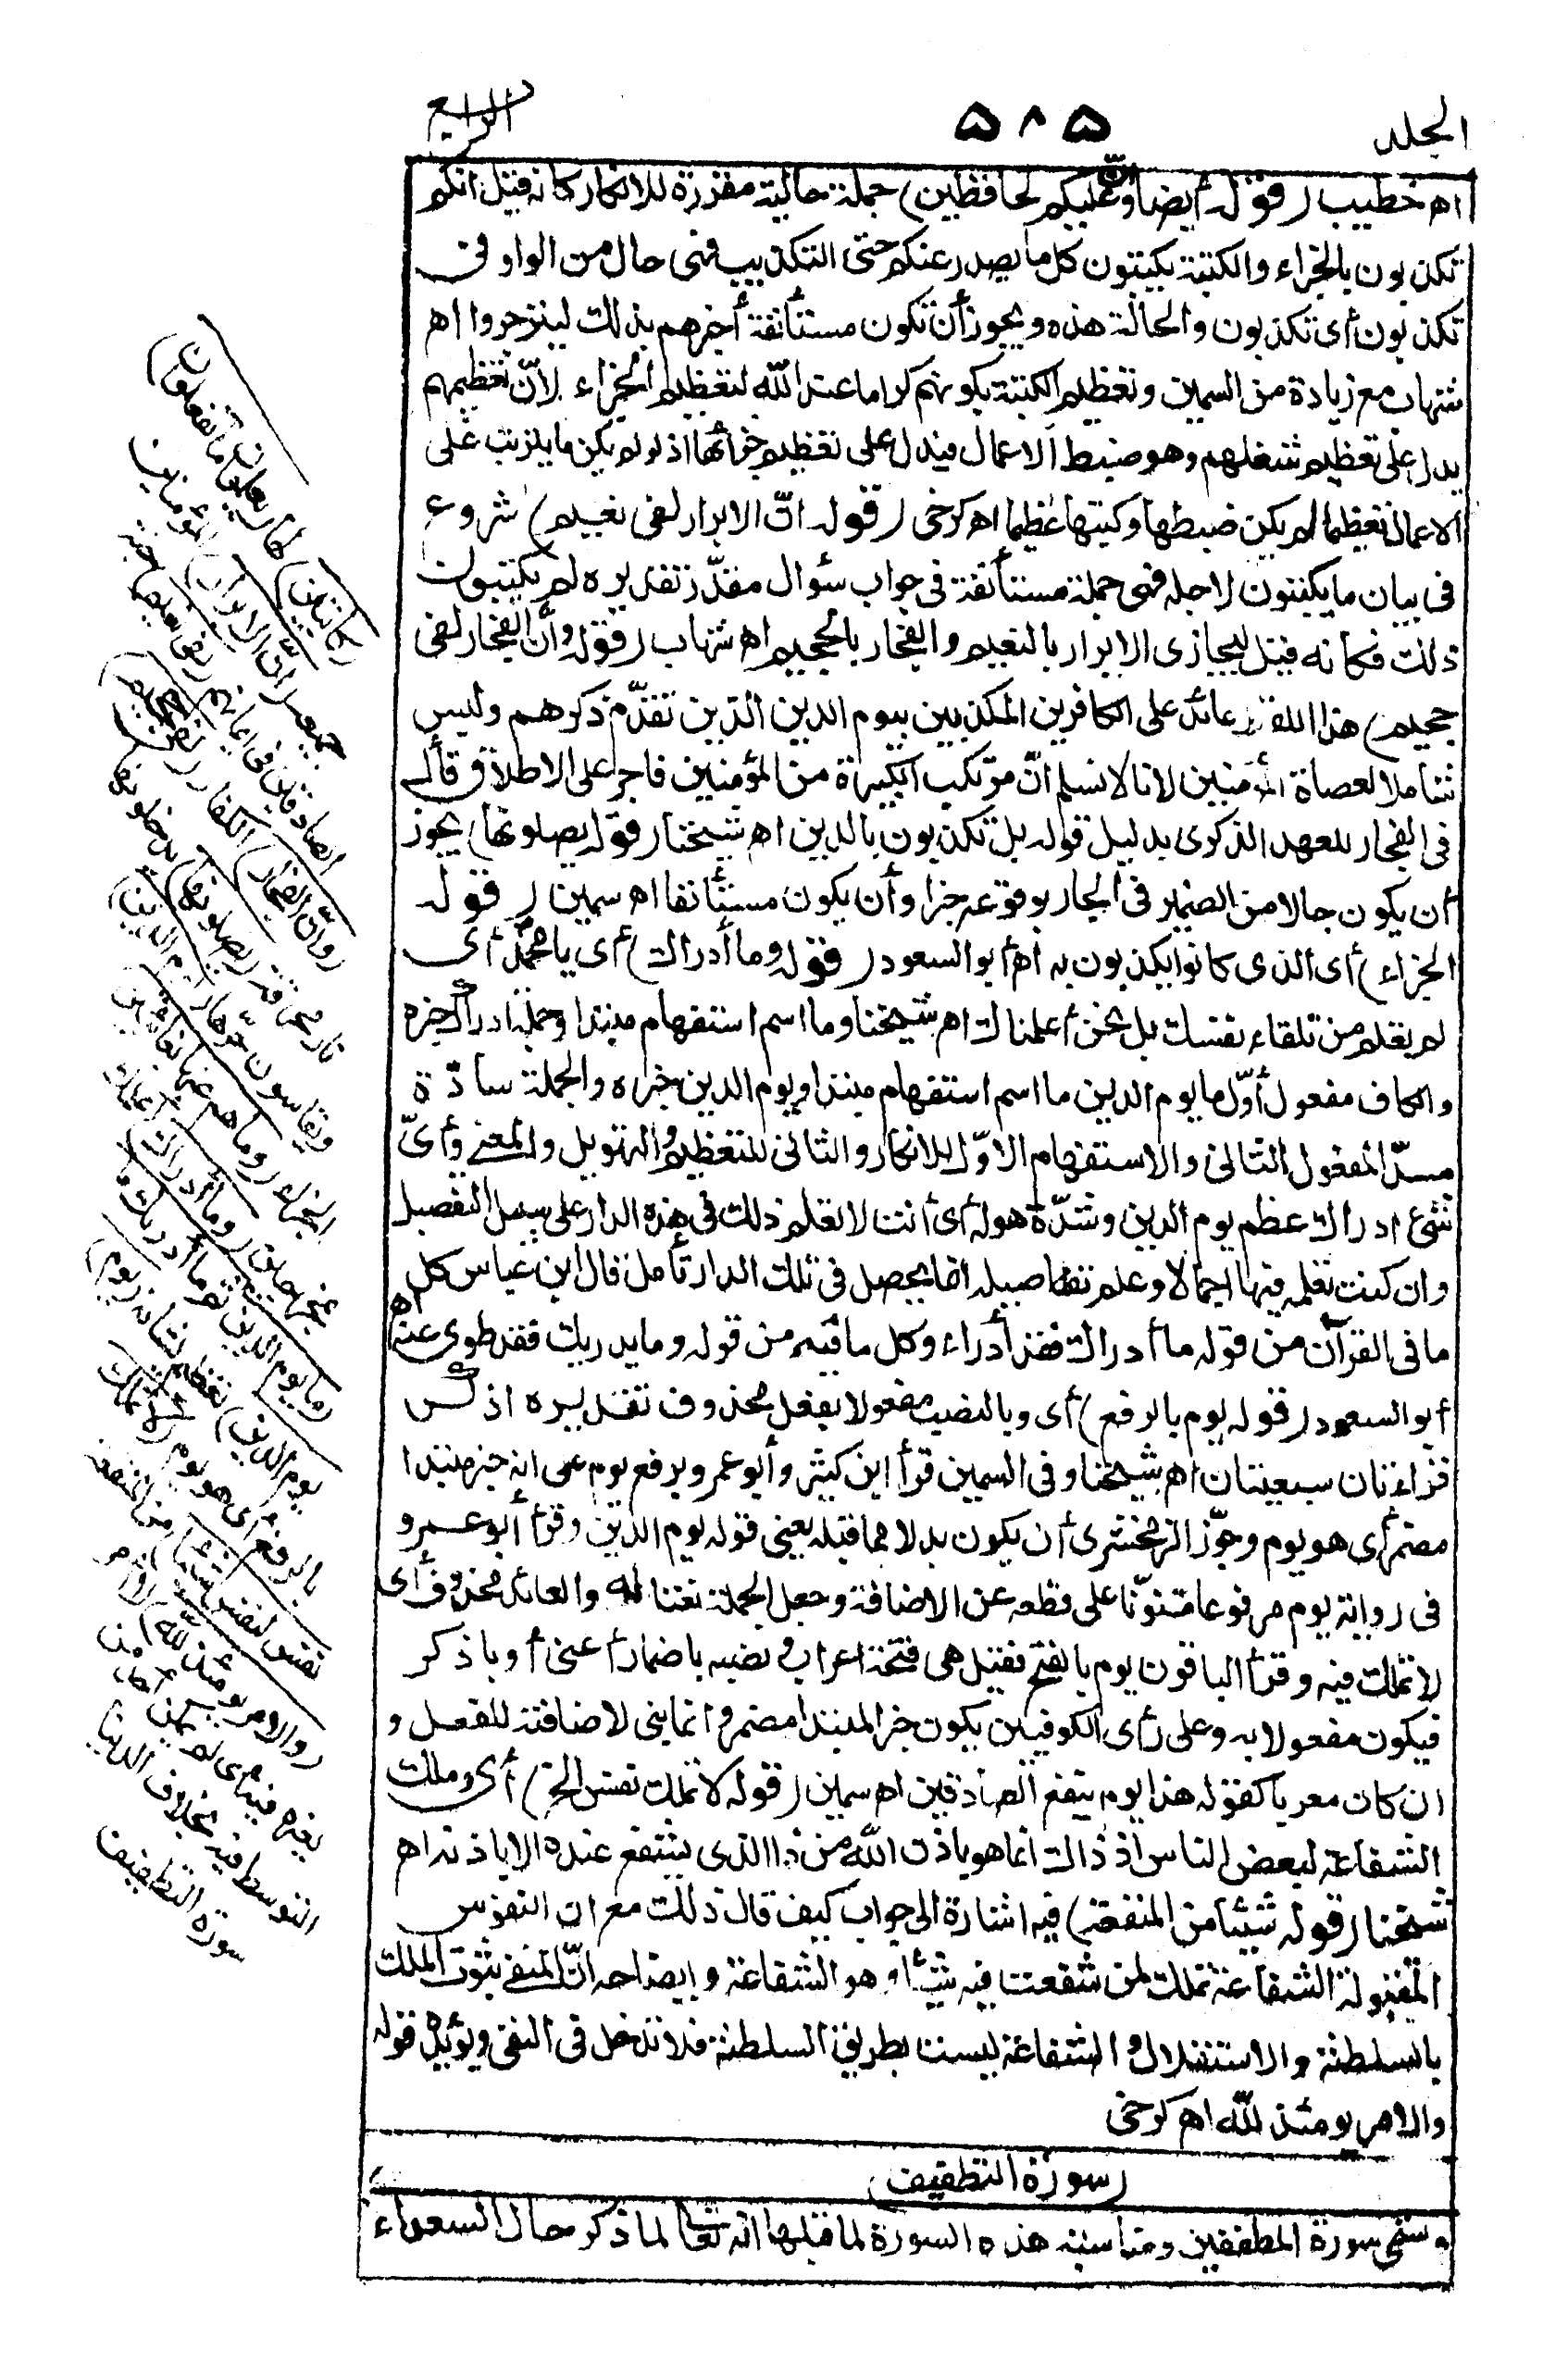 الجلد
٥٨٥
الرابع
اهـ خطيب (قوله أيضا وإنّ عليكم لحافظين) جملة حالية مقررة للانكار كانه قيل انكم
تكذبون بالجزاء والكتبة يكتبون كل ما يصدر عنكم حتى التكذيب فهى حال من الواو فى
تكذبون أى تكذبون والحالة هذه ويجوز أن تكون مستأنفة أخبرهم بذلك لينزجروا اهـ
شهاب مع زيادة من السمين وتعظيم الكتبة بكونهم كراما عند الله لتعظيم الجزاء لأنّ تعظيمهم
يدل على تعظيم شغلهم وهو ضبط الاعمال فيدل على تعظيم جزائها اذ لو لم يكن ما يترتب على
الاعمال تعظيما لم يكن ضبطها وكتبها عظيما اهـ كرخى (قوله انّ الابرار لفى نعيم) شروع
فى بيان ما يكتبون لاجله فهى جملة مستأنفة فى جواب سؤال مقدّر تقديره لم يكتبون
ذلك فكانه قيل ليجازى الابرار بالنعيم والفجار بالجحيم اهـ شهاب (قوله وأن الفجار لفى
جحيم) هذا اللفظ عائد على الكافرين المكذبين بيوم الدين الذين تقدّم ذكرهم وليس
شاملا لعصاة المؤمنين لانا لا نسلم انّ مرتكب الكبيرة من المؤمنين فاجر على الاطلاق قأل
فى الفجار للعهد الذكرى بدليل قوله بل تكذبون بالدين اهـ شيخنا (قوله يصلونها) يجوز
أن يكون حالا من الضمير فى الجار بوقوعه خبرا وأن يكون مستأنفا اهـ سمين (قوله
الجزاء) أى الذى كانوا يكذبون به اهـ أبو السعود (قوله وما أدراك) أى يا محمد أى
لم يعلم من تلقاء نفسك بل نحن أعلمناك اهـ شيخنا وما اسم استفهام مبتدا وجملة ادراك خبره
والكاف مفعول أوّل ما يوم الدين ما اسم استفهام مبتدا ويوم الدين خبره والجملة سادّة
مسدّ المفعول الثانى والاستفهام الاوّل للانكار والثانى للتعظيم والتهويل والمعنى وأىّ
شئ ادراك عظم يوم الدين وشدّة هوله أى أنت لا تعلم ذلك فى هذه الدار على سبيل التفصيل
وان كنت تعلمه فيها اجمالا وعلم تفاصيله انما يحصل فى تلك الدار تأمل قال ابن عباس كل
ما فى القرآن من قوله ما أدراك فقد أدراه وكل ما فيه من قوله وما يدريك فقد طوى عنه اهـ
أبو السعود (قوله يوم بالرفع) أى وبالنصب مفعولا بفعل محذوف تقديره اذكر
قراءتان سبعيتان اهـ شيخنا وفى السمين قرأ ابن كثير وأبو عمرو برفع يوم على انه خبر مبتدا
مضمر أى هو يوم وجوّز الزمخشرى أن يكون بدلا مما قبله يعنى قوله يوم الدين وقرأ أبو عمرو
فى رواية يوم مرفوعا منوّنا على قطعه عن الاضافة وجعل الجملة نعتا له والعائد محذوف أى
لا تملك فيه وقرأ الباقون يوم بالفتح فقيل هى فتحة اعراب ونصبه باضمار أعنى أو باذكر
فيكون مفعولا به وعلى رأى الكوفيين يكون خبر المبتدا مضمر وانما بنى لاضافته للفعل و
ان كان معربا كقوله هذا يوم ينفع الصادقين اهـ سمين (قوله لا تملك نفس الخ) أى وملك
الشفاعة لبعض الناس اذ ذاك انما هو باذن الله من ذا الذى يشفع عنده الا باذنه اهـ
شيخنا (قوله شيئا من المنفعة) فيه اشارة الى جواب كيف قال ذلك مع ان النفوس
المقبولة الشفاعة تملك لمن شفعت فيه شيئا وهو الشفاعة وايضاحه انّ المنفى ثبوت الملك
بالسلطنة والاستقلال والشفاعة ليست بطريق السلطنة فلا تدخل فى النفى ويؤيده قوله
والامر يومئذ لله اهـ كرخى
(سورة التطفيف)
وتسمى سورة المطففين ومناسبة هذه السورة لما قبلها انه تعالى لما ذكر حال السعداء
(كاتبين) لها (يعلمون ما تفعلون)
جميعه (انّ الابرار) المؤمنين
الصادقين فى ايمانهم (لفى نعيم) جنة
(وانّ الفجار) الكفار (لفى جحيم)
نار محرقة (يصلونها) يدخلونها
ويقاسون حرّها (يوم الدين)
الجزاء (وما هم عنها بغائبين)
بمخرجين (وما أدراك) أعلمك
(ما يوم الدين ثم ما أدراك ما
يوم الدين) تعظيم لشأنه (يوم)
بالرفع أى هو يوم (لا تملك
نفس لنفس شيئا) من المنفعة
(والامر يومئذ لله) لا أمر
لغيره فيه أى لم يمكن أحدا من
التوسط فيه بخلاف الدنيا
سورة التطفيف